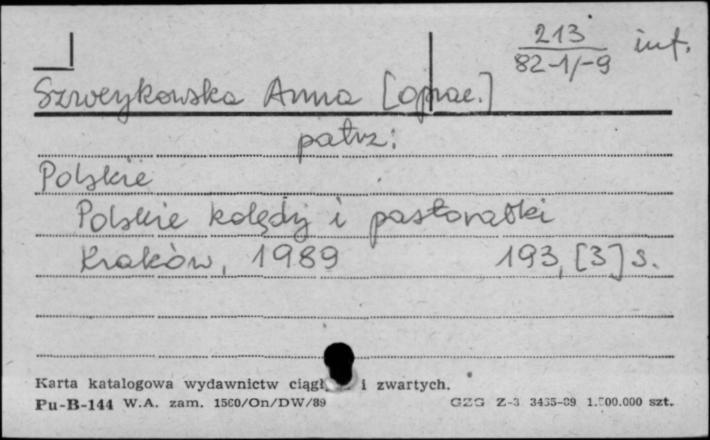 213 inf.
82-1/-9
Szweykowska Anna [oprac.]
patrz:
Polskie
Polskie kolędy i pastorałki
Kraków, 1989 193, [3] s.
Karta katalogowa wydawnictw i zwartych.
Pu-B-144 W.A. zam. 1560/On/DW/89 GZG Z-3 3435-89 1.500.000 szt.